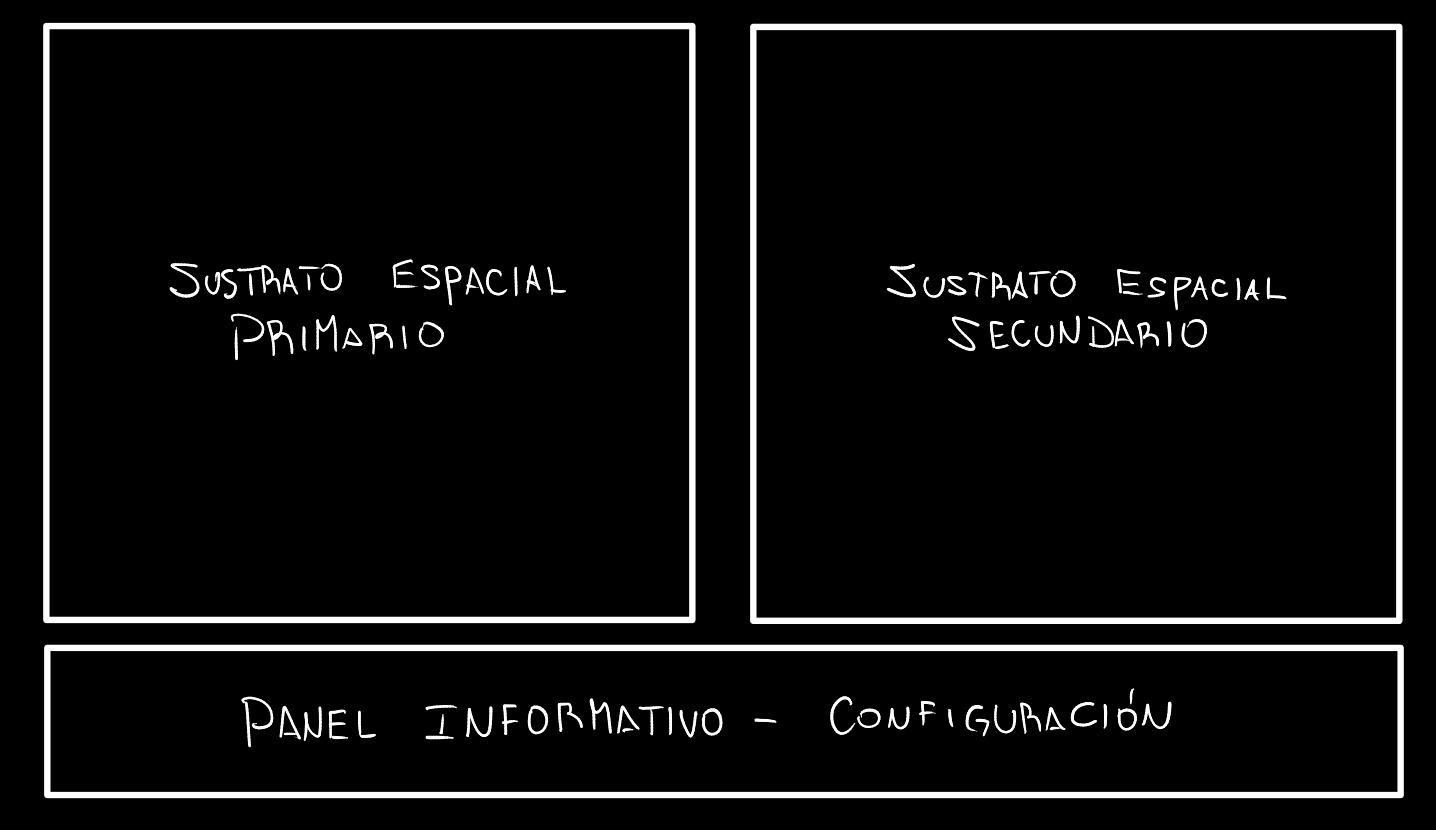 SUSTRATO ESPACIAL
PRIMARIO
SUSTRATO ESPACIAL
SECUNDARIO
PANEL INFORMATIVO - CONFIGURACIÓN